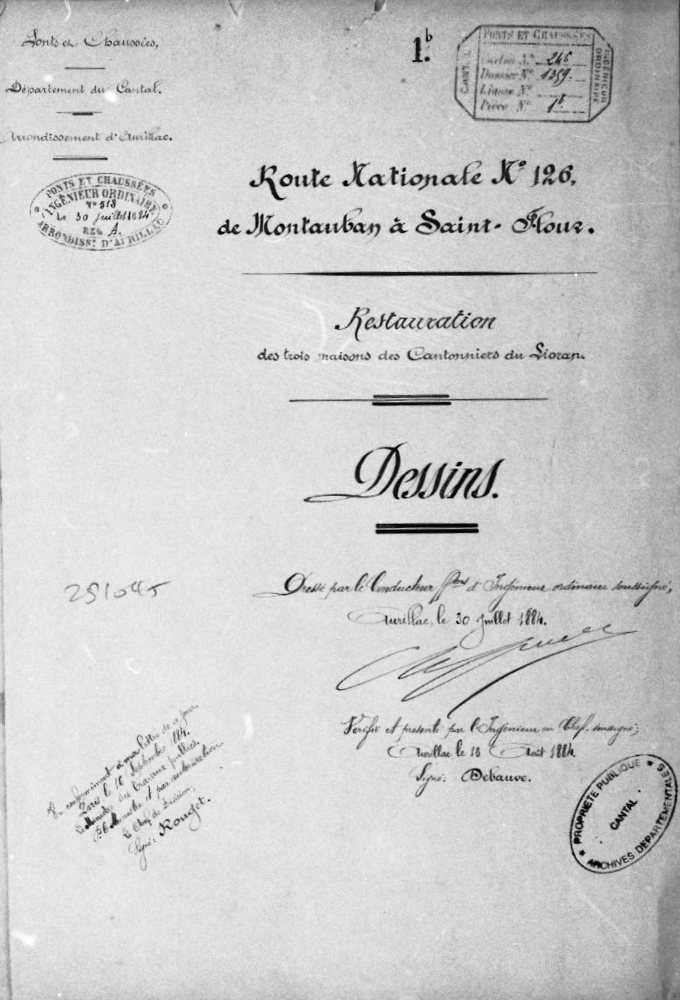 Ponts et Chaussées,
Département du Cantal.
Arrondissement d'Aurillac.
PONTS ET CHAUSSÉES
INGÉNIEUR ORDINAIRE
N° 513
Le 30 Juillet 1884
REG A.
ARRONDISST D'AURILLAC
1.b
PONTS ET CHAUSSÉES
CANTAL
INGÉNIEUR ORDINAIRE
Carton N° 246
Dossier N° 1359.
Liasse N°
Pièce N° 1b
Route Nationale N° 126,
de Montauban à Saint-Flour.
Restauration
des trois maisons des Cantonniers du Lioran.
Dessins.
Dressé par le Conducteur fons d'Ingénieur ordinaire soussigné,
Aurillac, le 30 juillet 1884.
251045
Vérifié et présenté par l'Ingénieur en Chef soussigné;
Aurillac le 18 Août 1884
Signé: Debauve.
Conformément à ma lettre de ce jour
Paris le 10 Septembre 1884.
Le Ministre des travaux publics,
P. le Ministre et par autorisation
Le Chef de Division,
Signé: Rouget.
PROPRIETE PUBLIQUE
CANTAL
ARCHIVES DEPARTEMENTALES